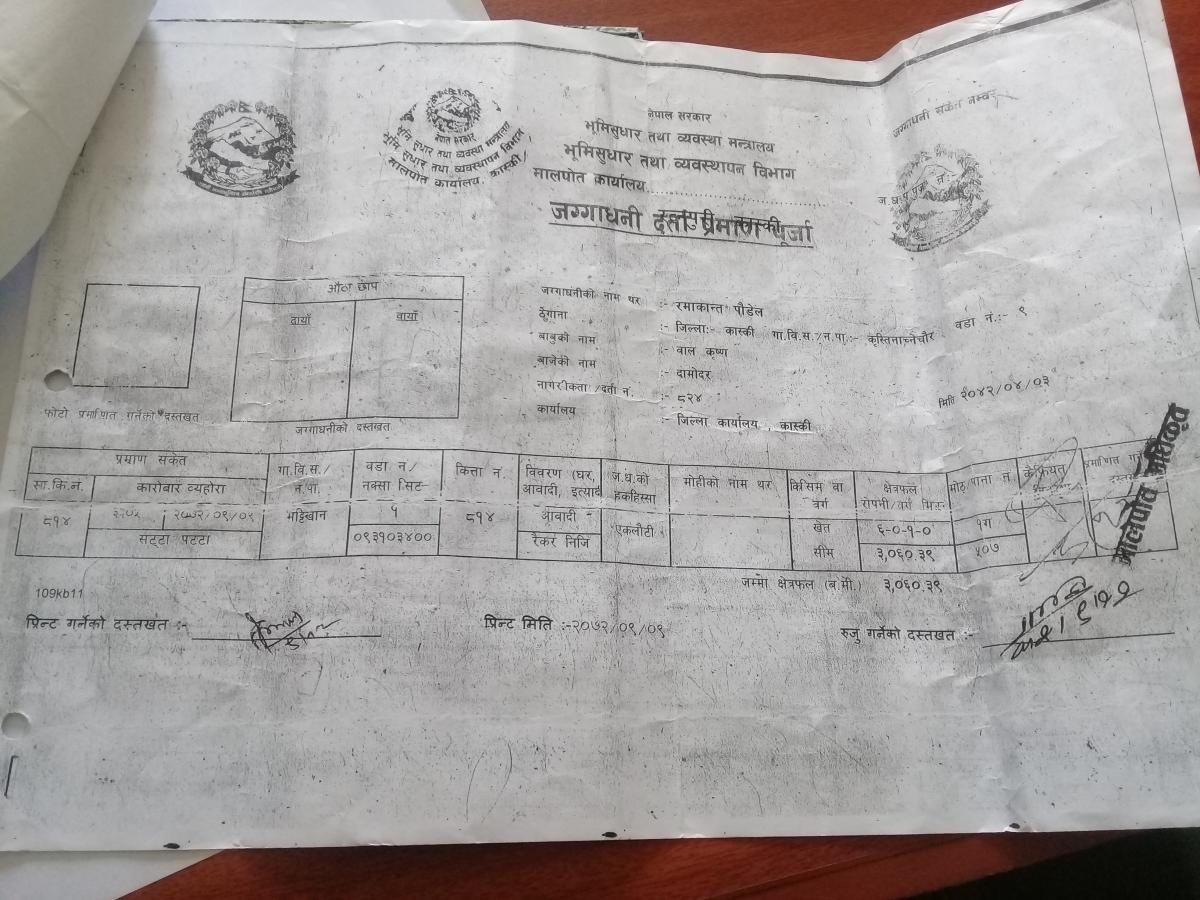 नेपाल सरकार
भूमिसुधार तथा व्यवस्था मन्त्रालय
भूमिसुधार तथा व्यवस्थापन विभाग
मालपोत कार्यालय
जग्गाधनी दर्ता प्रमाण पूर्जा
जग्गाधनी संकेत नम्बर
नेपाल सरकार
भूमि सुधार तथा व्यवस्था मन्त्रालय
भूमि सुधार तथा व्यवस्थापन विभाग
मालपोत कार्यालय, कास्की
औंठा छाप
दायाँ
वायाँ
फोटो प्रमाणित गर्नेको दस्तखत
जग्गाधनीको दस्तखत
जग्गाधनीको नाम थर :- रमाकान्त पौडेल
ठेगाना :- जिल्ला:- कास्की गा.वि.स./न.पा.:- कृस्तिनाच्नेचौर वडा नं.:- ९
बाबुको नाम :- वाल कृष्ण
बाजेको नाम :- दामोदर
नागरीकता /दर्ता न. :- ८२४ मिति २०४२/०४/०३
कार्यालय :- जिल्ला कार्यालय , कास्की
प्रमाण संकेत
सा.कि.नं.
कारोबार व्यहोरा
गा.वि.स./ न.पा.
वडा न/ नक्सा सिट
कित्ता न.
विवरण (घर, आवादी, इत्यादि
ज.ध.को हकहिस्सा
मोहीको नाम थर
किसिम वा वर्ग
क्षेत्रफल
मोठ/पाना न
कैफियत
८१४
२०७२/०९/०९
सट्टा पट्टा
५
०९३१०३४००
८१४
आवादी -
रैकर निजि
एकलौटी
खेत
सीम
६-०-१-०
३,०६०.३९
५०७
जम्मा क्षेत्रफल (ब.मी.) ३,०६०.३९
109kb11
प्रिन्ट गर्नेको दस्तखत :-
प्रिन्ट मिति :-२०७२/०९/०९
रुजु गर्नेको दस्तखत :-